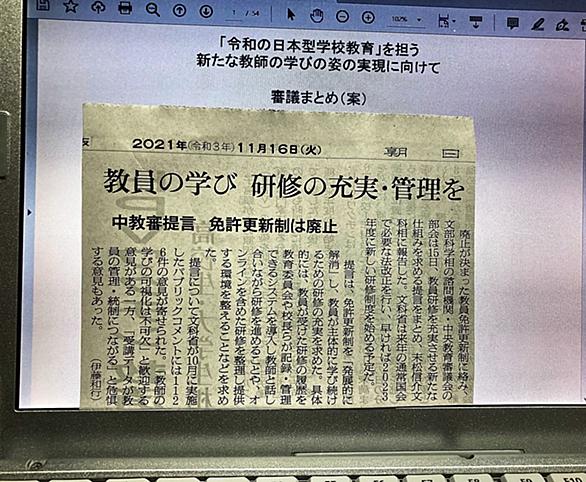 1 / 54
102%
「令和の日本型学校教育」を担う
新たな教師の学びの姿の実現に向けて
審議まとめ(案)
2021年(令和3年)11月16日(火)
朝 日
教員の学び 研修の充実・管理を
中教審提言 免許更新制は廃止
廃止が決まった教員免許更新制に絡み、
文部科学相の諮問機関・中央教育審議会の
部会は15日、教員研修を充実させる新たな
仕組みを求める提言をまとめ、末松信介文
科相に報告した。文科省は来年の通常国会
で必要な法改正を行い、早ければ2023
年度に新しい研修制度を始める予定だ。
提言は、免許更新制を「発展的に
解消」し、教員が主体的に学び続け
るための研修の充実を求めた。具体
的には、教員が受けた研修の履歴を
教育委員会や校長らが記録・管理
できるシステムを導入し教師と話し
合いながら研修を進めることや、オ
ンラインを含めた研修を整理し提供
する環境を整えることなどを求め
た。
提言について文科省が10月に実施
したパブリックコメントには112
6件の意見が寄せられた。「教師の
学びの可視化は不可欠」と歓迎する
意見がある一方、「受講データが教
員の管理・統制につながる」と危惧
する意見もあった。 (伊藤和行)